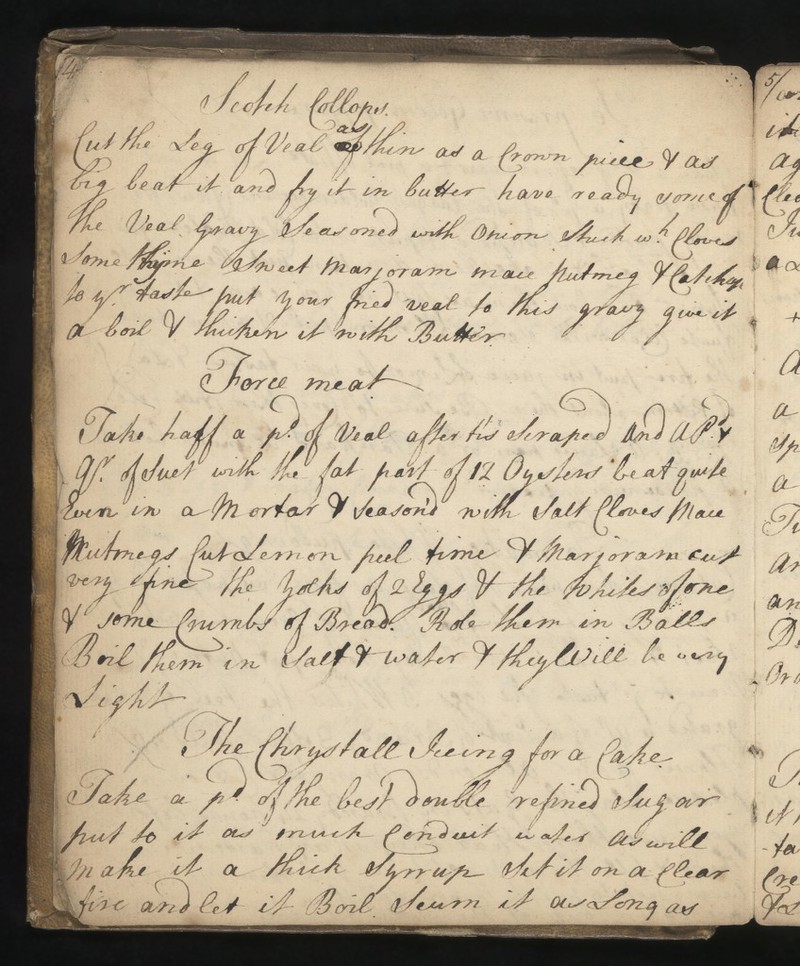 4
Scotch Collops.
Cut the Leg of Veal as thin as a Crown piece & as
big beat it and fry it in butter have ready some of
the Veal Gravy Seasoned with Onion Stuck wh. Cloves
Some thyme Sweet Marjoram mace Nutmeg & Catchup
to yr. taste put your fried veal to this gravy give it
a boil & thicken it with Butter
Force meat
Take haff a pd. of Veal after tis Scraped And A Pd. &
qr. of Suet with the fat part of 12 Oysters beat quite
Even in a Mortar & Season'd with Salt Cloves Mace
Nutmegs Cut Lemon peel time & Marjoram cut
very fine the Yolks of 2 Eggs & the Whites of one
& some Crumbs of Bread. Role them in Balls
Boil them in Salt & water & they Will be very
Light
The Chrystall Iceing for a Cake
Take a pd. of the best double refined Sugar
put to it as much Conduit water as will
make it a thick Syrrup Set it on a Clear
fire and let it Boil Scum it as Long as
5